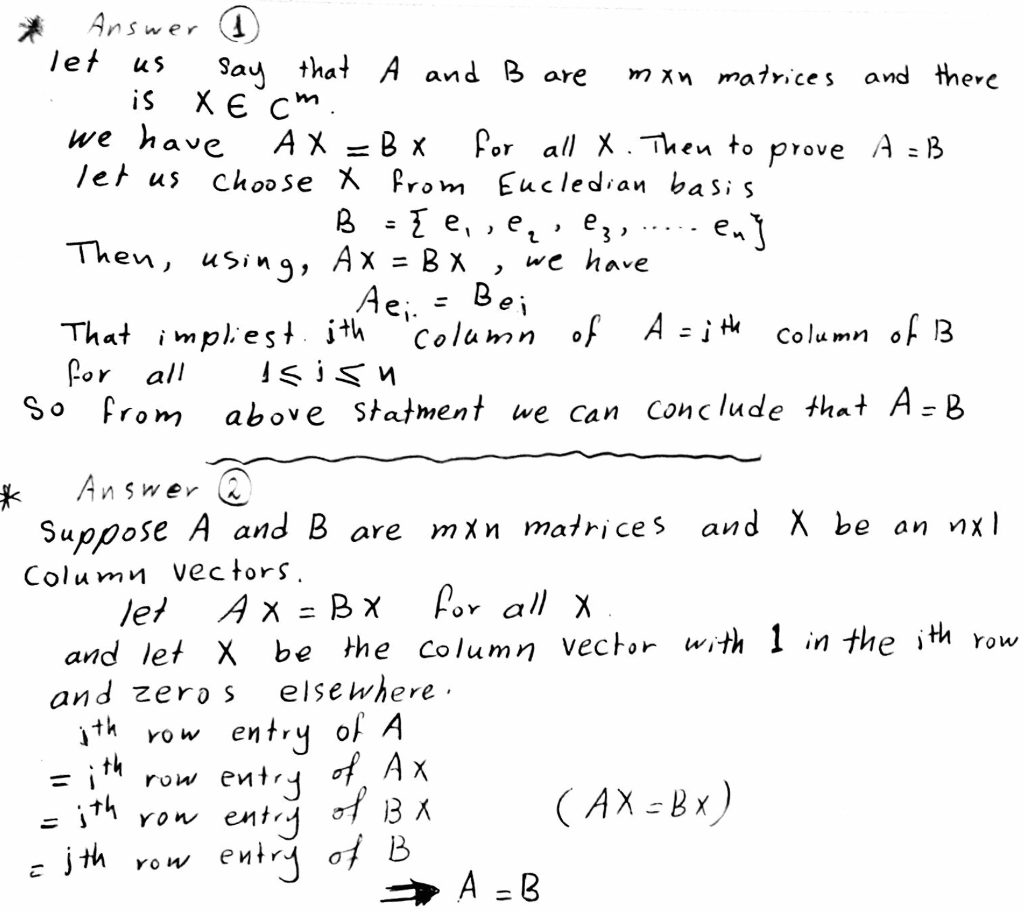 * Answer ①
let us say that A and B are m×n matrices and there
is X ∈ C^m.
we have AX = BX for all X. Then to prove A = B
let us choose X from Eucledian basis
B = {e₁, e₂, e₃, ..... eₙ}
Then, using, AX = BX, we have
Aeᵢ = Beᵢ
That impliest ith column of A = ith column of B
for all 1 ≤ i ≤ n
So from above statment we can conclude that A = B
* Answer ②
Suppose A and B are m×n matrices and X be an n×1
Column vectors.
let AX = BX for all X.
and let X be the column vector with 1 in the ith row
and zeros elsewhere.
jth row entry of A
= ith row entry of AX
= jth row entry of BX (AX = BX)
= jth row entry of B
⇒ A = B